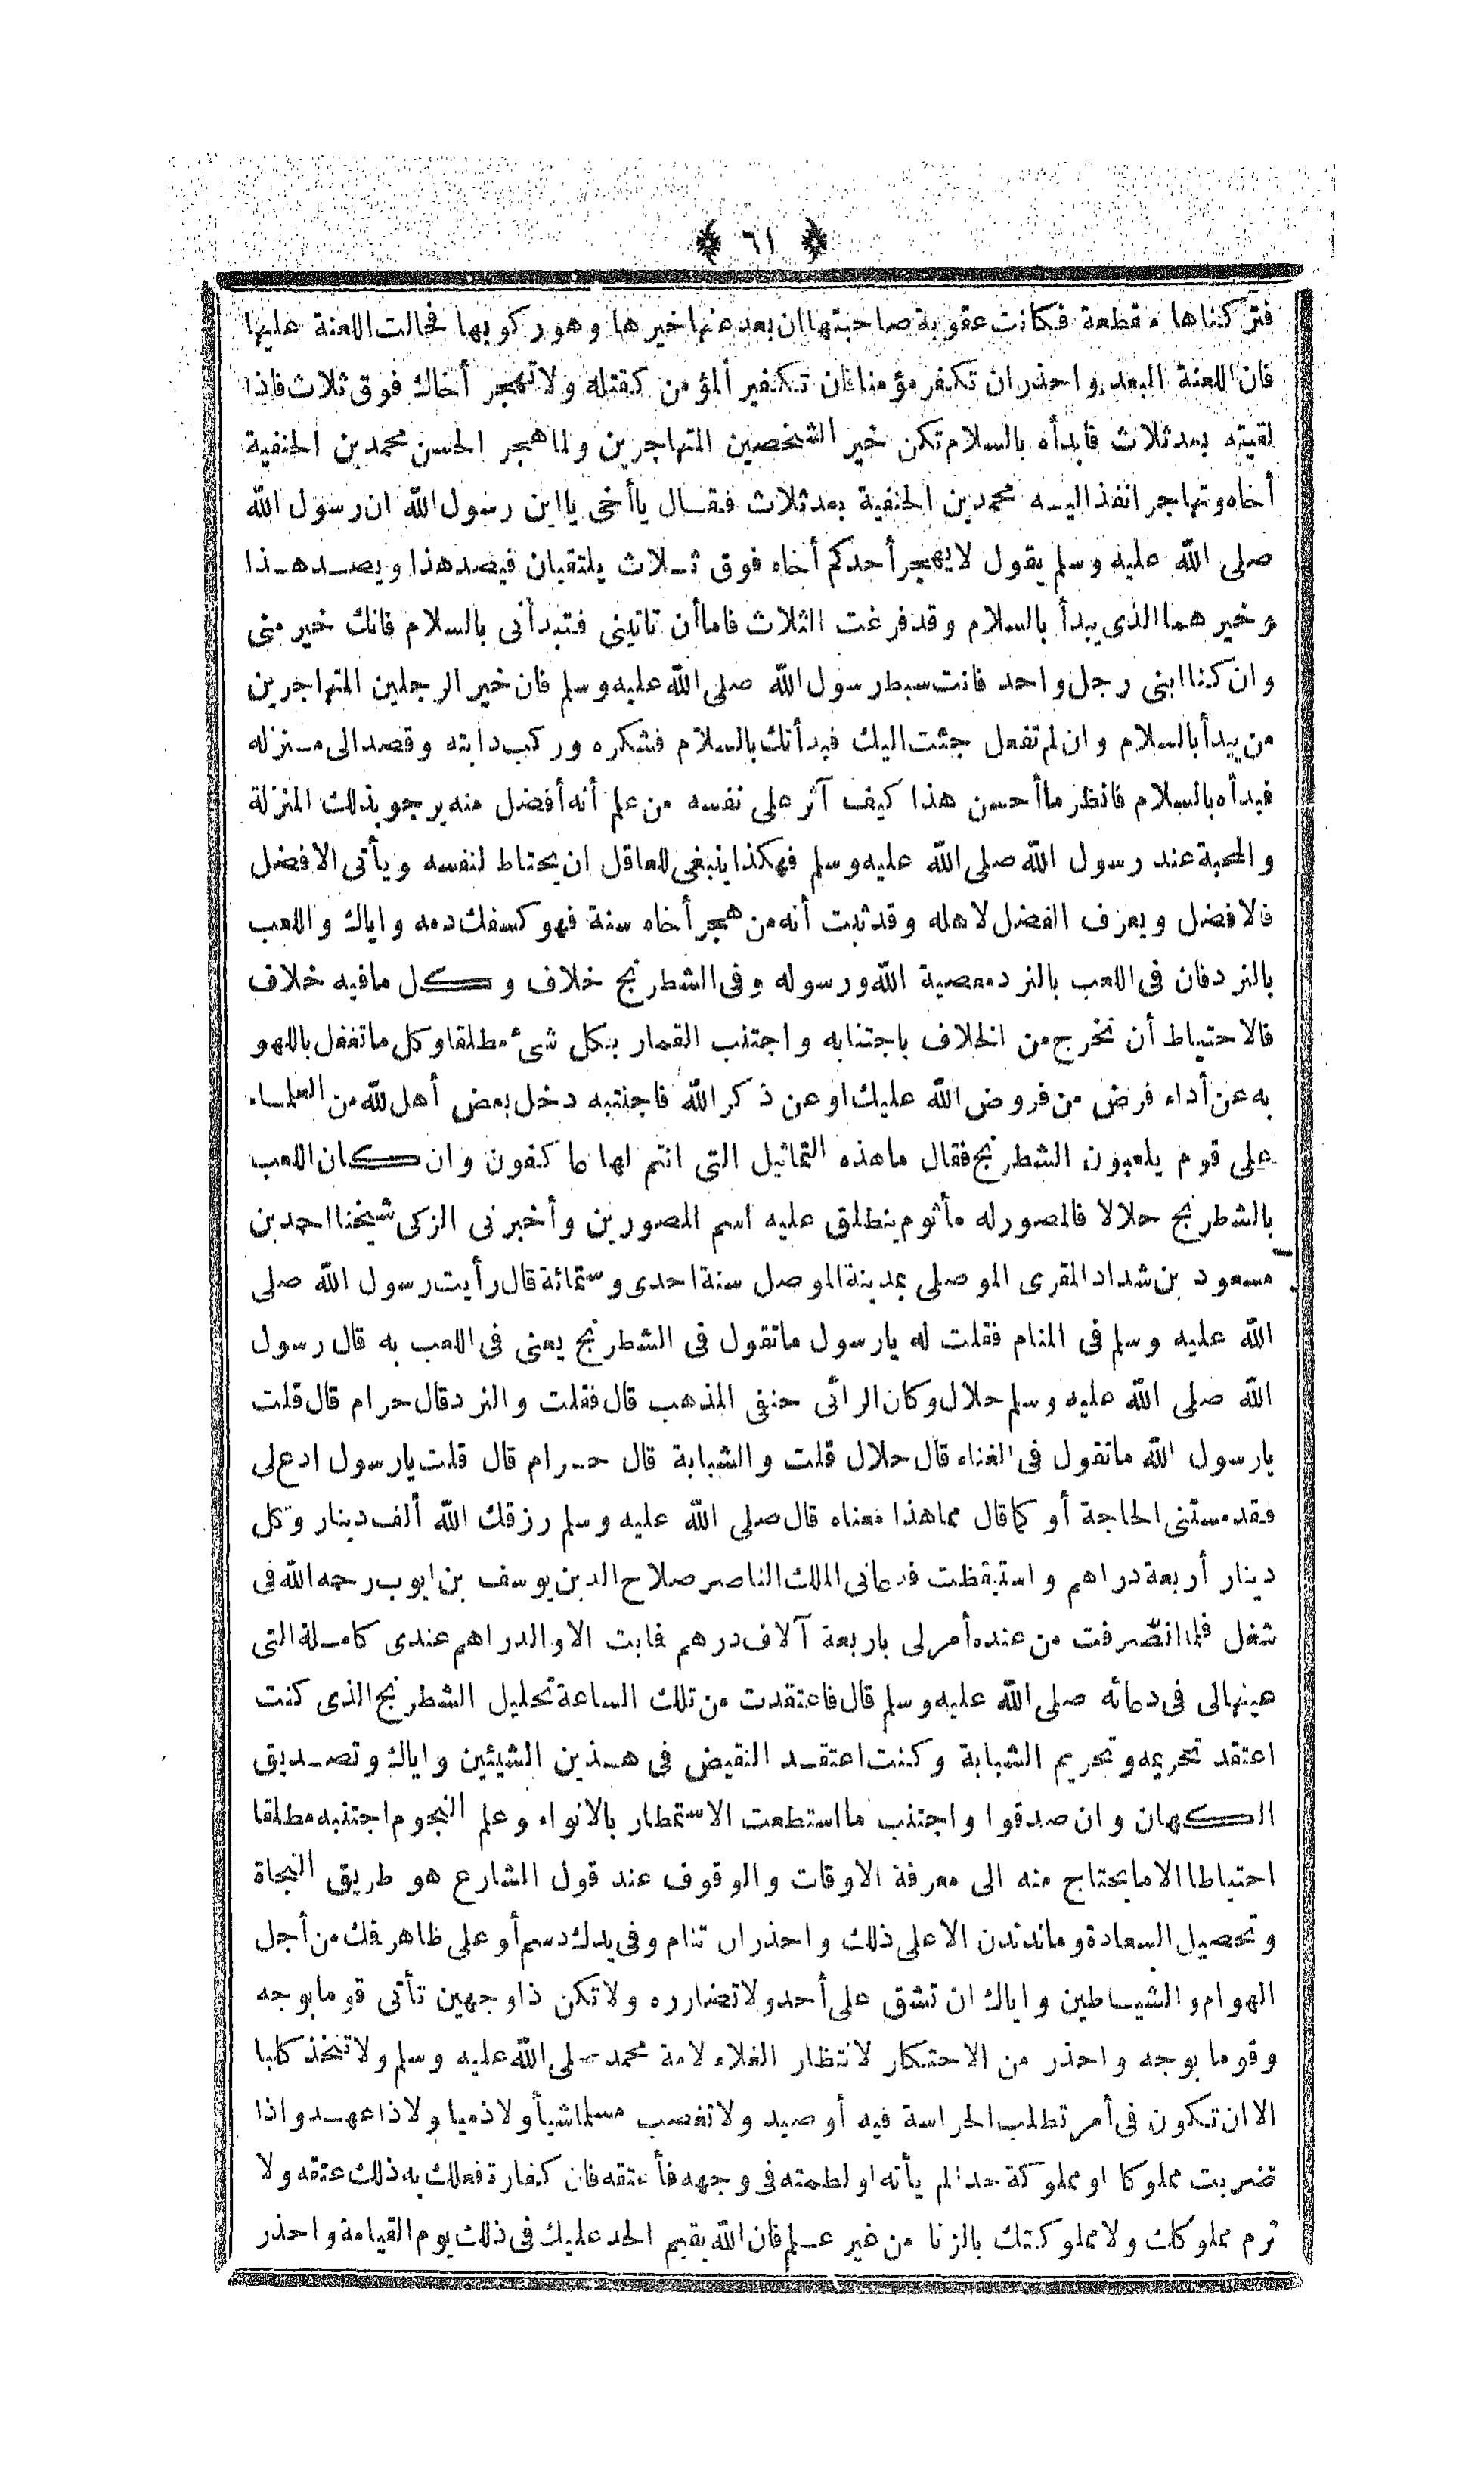 ٦١
فتركناها مقطعة فكانت عقوبة صاحبتها ان بعد عنها خيرها وهو ركوبها فحالت اللعنة عليها
فان اللعنة البعد واحذر ان تكفر مؤمنا فان تكفير المؤمن كقتله ولا تهجر أخاك فوق ثلاث فاذا
لقيته بعد ثلاث فابدأه بالسلام تكن خير الشخصين المتهاجرين ولما هجر الحسن محمد بن الحنفية
أخاه وتهاجرا نفذ اليه محمد بن الحنفية بعد ثلاث فقال يا أخى يا ابن رسول الله ان رسول الله
صلى الله عليه وسلم يقول لا يهجر أحدكم أخاه فوق ثلاث يلتقيان فيصد هذا ويصد هذا
وخيرهما الذى يبدأ بالسلام وقد فرغت الثلاث فاما أن تاتينى فتبدأنى بالسلام فانك خير منى
وان كنا ابنى رجل واحد فانت سبط رسول الله صلى الله عليه وسلم فان خير الرجلين المتهاجرين
من يبدأ بالسلام وان لم تفعل جئت اليك فبدأتك بالسلام فشكره وركب دابته وقصد الى منزله
فبدأه بالسلام فانظر ما أحسن هذا كيف آثر على نفسه من علم أنه أفضل منه يرجو بذلك المنزلة
والمحبة عند رسول الله صلى الله عليه وسلم فهكذا ينبغى للعاقل ان يحتاط لنفسه ويأتى الافضل
فالافضل ويعرف الفضل لاهله وقد ثبت أنه من هجر أخاه سنة فهو كسفك دمه واياك واللعب
بالنرد فان فى اللعب بالنرد معصية الله ورسوله وفى الشطرنج خلاف وكل ما فيه خلاف
فالاحتياط أن تخرج من الخلاف باجتنابه واجتنب القمار بكل شئ مطلقا وكل ما تغفل باللهو
به عن أداء فرض من فروض الله عليك او عن ذكر الله فاجتنبه دخل بعض أهل لله من العلماء
على قوم يلعبون الشطرنج فقال ما هذه التماثيل التى انتم لها عا كفون وان كان اللعب
بالشطرنج حلالا فالمصور له مأثوم ينطلق عليه اسم المصورين وأخبرنى الزكى شيخنا احمد بن
مسعود بن شداد المقرى الموصلى بمدينة الموصل سنة احدى وستمائة قال رأيت رسول الله صلى
الله عليه وسلم فى المنام فقلت له يا رسول ما تقول فى الشطرنج يعنى فى اللعب به قال رسول
الله صلى الله عليه وسلم حلال وكان الرائى حنفى المذهب قال فقلت والنرد قال حرام قال قلت
يا رسول الله ما تقول فى الغناء قال حلال قلت والشبابة قال حرام قال قلت يا رسول ادع لى
فقد مستنى الحاجة أو كما قال مما هذا معناه قال صلى الله عليه وسلم رزقك الله ألف دينار وكل
دينار أربعة دراهم واستيقظت فدعانى الملك الناصر صلاح الدين يوسف بن ايوب رحمه الله فى
شغل فلما انصرفت من عنده أمر لى باربعة آلاف درهم فما بت الا والدراهم عندى كاملة التى
عينها لى فى دعائه صلى الله عليه وسلم قال فاعتقدت من تلك الساعة تحليل الشطرنج الذى كنت
اعتقد تحريمه وتحريم الشبابة وكنت اعتقد النقيض فى هذين الشيئين واياك وتصديق
الكهان وان صدقوا واجتنب ما استطعت الاستمطار بالانواء وعلم النجوم اجتنبه مطلقا
احتياطا الا ما يحتاج منه الى معرفة الاوقات والوقوف عند قول الشارع هو طريق النجاة
وتحصيل السعادة وما ندندن الا على ذلك واحذر ان تنام وفى يدك دسم أو على ظاهر فك من أجل
الهوام والشياطين واياك ان تشق على أحد ولا تضارره ولا تكن ذا وجهين تأتى قوما بوجه
وقوما بوجه واحذر من الاحتكار لانتظار الغلاء لامة محمد صلى الله عليه وسلم ولا تتخذ كلبا
الا ان تكون فى أمر تطلب الحراسة فيه أو صيد ولا تغصب مسلما شيأ ولا ذميا ولا ذا عهد واذا
ضربت مملوكا او مملوكة حدا لم يأته او لطمته فى وجهه فأعتقه فان كفارة فعلك به ذلك عتقه ولا
ترم مملوكك ولا مملوكتك بالزنا من غير علم فان الله يقيم الحد عليك فى ذلك يوم القيامة واحذر